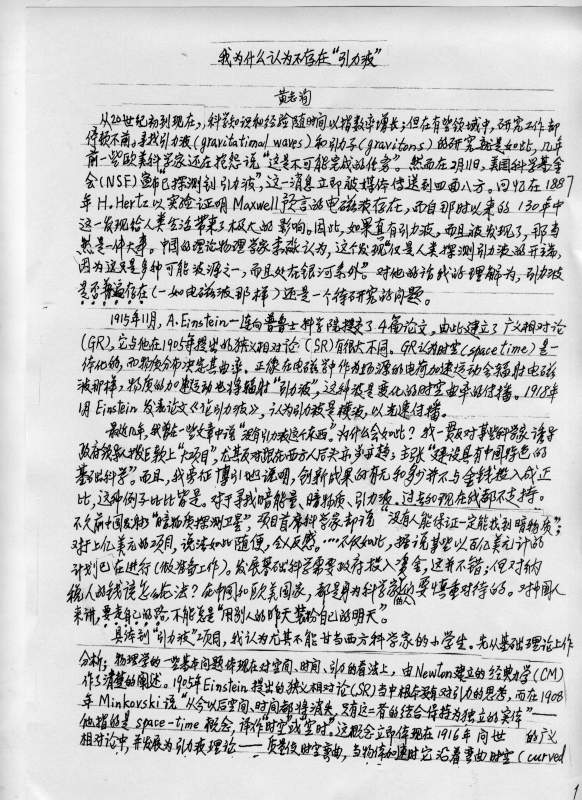 我为什么认为不存在“引力波”
黄志洵
从20世纪初到现在,科学知识和经验随时间以指数率增长;但在有些领域中,研究工作却
停顿不前。寻找引力波(gravitational waves)和引力子(gravitons)的研究就是如此,几年
前一些欧美科学家还在抱怨说“这是不可能完成的任务”。然而在2月11日,美国科学基金
会(NSF)宣布“已探测到引力波”,这一消息立即被媒体传送到四面八方。回忆在1887
年H.Hertz以实验证明Maxwell预言的电磁波存在,而自那时以来的130年中
这一发现给人类生活带来了极大的影响。因此,如果真有引力波,而且被发现了,那当
然是一件大事。中国的理论物理学家李淼认为,这个发现“仅是人类探测引力波的开端,
因为这只是多种可能波源之一,而且处在银河系外”。对他的话我的理解为,引力波
是否普遍存在(一如电磁波那样)还是一个待研究的问题。
1915年11月,A.Einstein一连向普鲁士科学院提交了4篇论文,由此建立了广义相对论
(GR),它与他在1905年提出的狭义相对论(SR)有很大不同。GR认为时空(spacetime)是一
体化的,而物质分布决定其曲率。正像在电磁学中作为场源的电荷加速运动会辐射电磁
波那样,物质的加速运动也将辐射“引力波”,这种波是变化的时空曲率的传播。1918年
1月Einstein发表论文《论引力波》,认为引力波是横波,以光速传播。
最近几年,我曾在一些文章中说“没有引力波这个东西”。为什么会如此?我一贯反对某些科学家诱导
政府领导拨巨款上“大项目”,尤其反对跟在西方人后头亦步亦趋;主张“建设具有中国特色的
基础科学”。而且,我旁征博引地说明,创新成果的有无和多少并不与金钱投入成正
比,这种例子比比皆是。对于寻找暗能量、暗物质、引力波,过去和现在我都不支持。
不久前中国发射“暗物质探测卫星”,项目首席科学家却说“没有人能保证一定能找到暗物质”;
对上亿美元的项目,说法如此随便,令人反感。……不仅如此,据说某些以百亿美元计的
计划已在进行(做准备工作)。发展基础科学需要政府投入资金,这并不错;但对纳
税人的钱该怎么花法?在中国和欧美国家,都是身为科学家的人要慎重对待的。对中国人
来讲,要走自己的路,不能总是“用别人的昨天装扮自己的明天”。
具体到“引力波”项目,我认为尤其不能甘当西方科学家的小学生。先从基础理论上作
分析;物理学的一些基本问题体现在对空间、时间、引力的看法上,由Newton建立的经典力学(CM)
作了清楚的阐述。1905年Einstein提出的狭义相对论(SR)当中根本没有对引力的思考,而在1908
年Minkovski说“从今以后空间、时间都将消失,只有这二者的结合保持为独立的实体”——
他指的是space-time概念,译作“时空”或“空时”。这概念立即体现在1916年问世的广义
相对论中,并发展为引力波理论——质量使时空弯曲,当物体加速时它沿着弯曲时空(curved
1